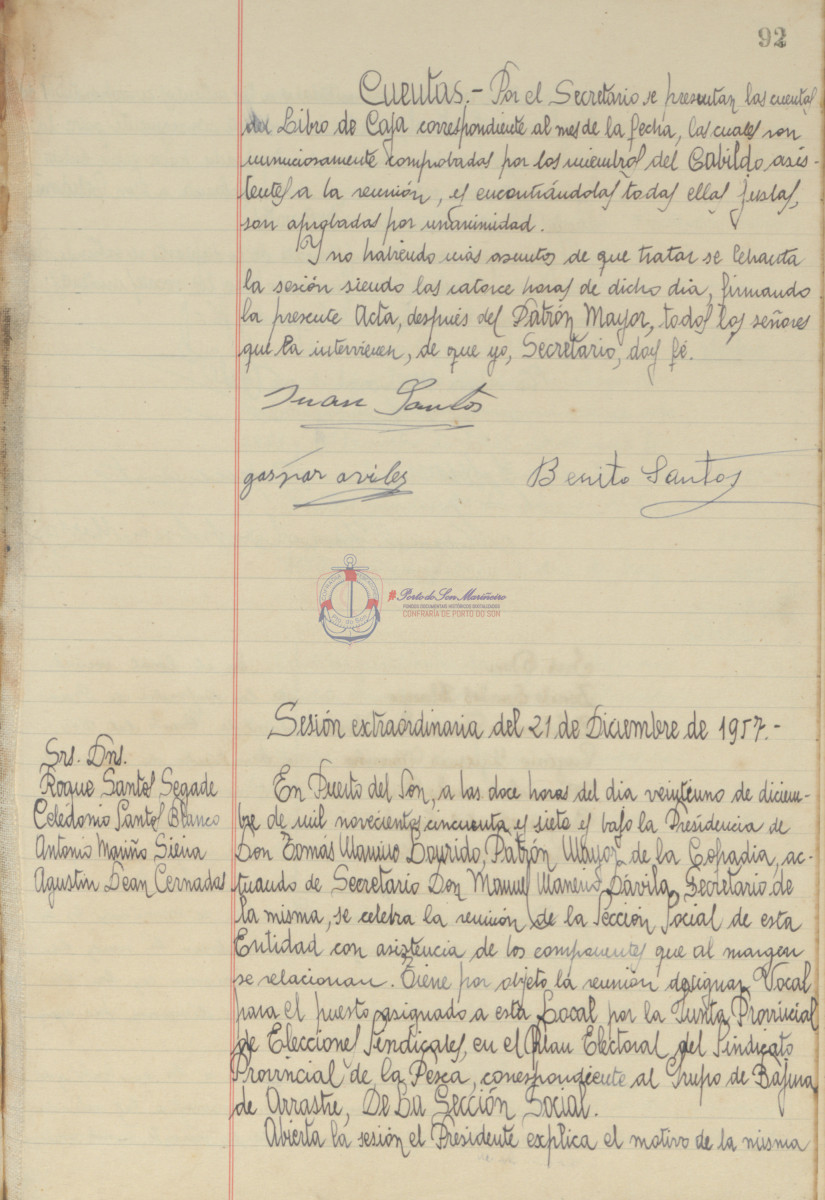 92
Cuentas.- Por el Secretario se presentan las cuentas
del Libro de Caja correspondiente al mes de la fecha, las cuales son
minuciosamente comprobadas por los miembros del Cabildo asis-
tentes a la reunión, y encontrándolas todas ellas justas,
son aprobadas por unanimidad.
Y no habiendo más asuntos de que tratar se levanta
la sesión siendo las catorce horas de dicho dia, firmando
la presente Acta, después del Patrón Mayor, todos los señores
que la intervienen, de que yo, Secretario, doy fé.
Juan Santos
gaspar aviles
Benito Santos
Porto do Son Mariñeiro
FONDOS DOCUMENTAIS HISTÓRICOS DIXITALIZADOS
CONFRARÍA DE PORTO DO SON
Sesión extraordinaria del 21 de Diciembre de 1957.-
Srs. Dns.
Roque Santos Segade
Celedonio Santos Blanco
Antonio Mariño Sieira
Agustin Dean Cernadas
En Puerto del Son, a las doce horas del dia veintiuno de diciem-
bre de mil novecientos cincuenta y siete y bajo la Presidencia de
Don Tomás Mariño, Patrón Mayor de la Cofradia, ac-
tuando de Secretario Don Manuel Maneiro Dávila, Secretario de
la misma, se celebra la reunión de la Sección Social de esta
Entidad con asistencia de los componentes que al margen
se relacionan. Tiene por objeto la reunión designar Vocal
para el puesto asignado a esta Local por la Junta Provincial
de Elecciones Sindicales, en el Plan Electoral del Sindicato
Provincial de la Pesca, correspondiente al Grupo de Bajura
de Arrastre, De La Sección Social.
Abierta la sesión el Presidente explica el motivo de la misma